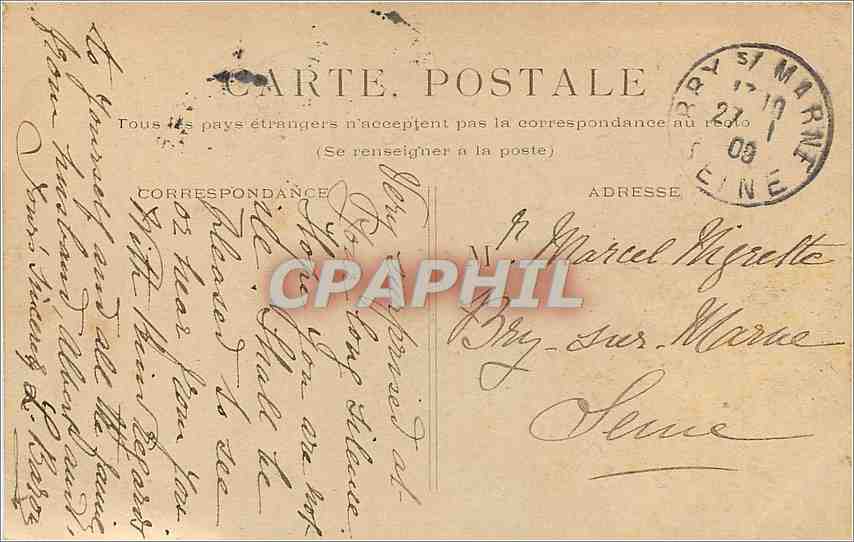 CARTE POSTALE
Tous les pays étrangers n'acceptent pas la correspondance au recto
(Se renseigner à la poste)
CORRESPONDANCE
ADRESSE
BRY s/ MARNE
27 1
09
SEINE
Mr. Marcel Nigrette
Bry-sur-Marne
Seine
Very surprised at
so long silence
Hope you are not
ill. Shall be
pleased to see
or hear from you
With kind regards
to yourself and all the family
from husband, Albert and
Yours sincerely L.
CPAPHIL